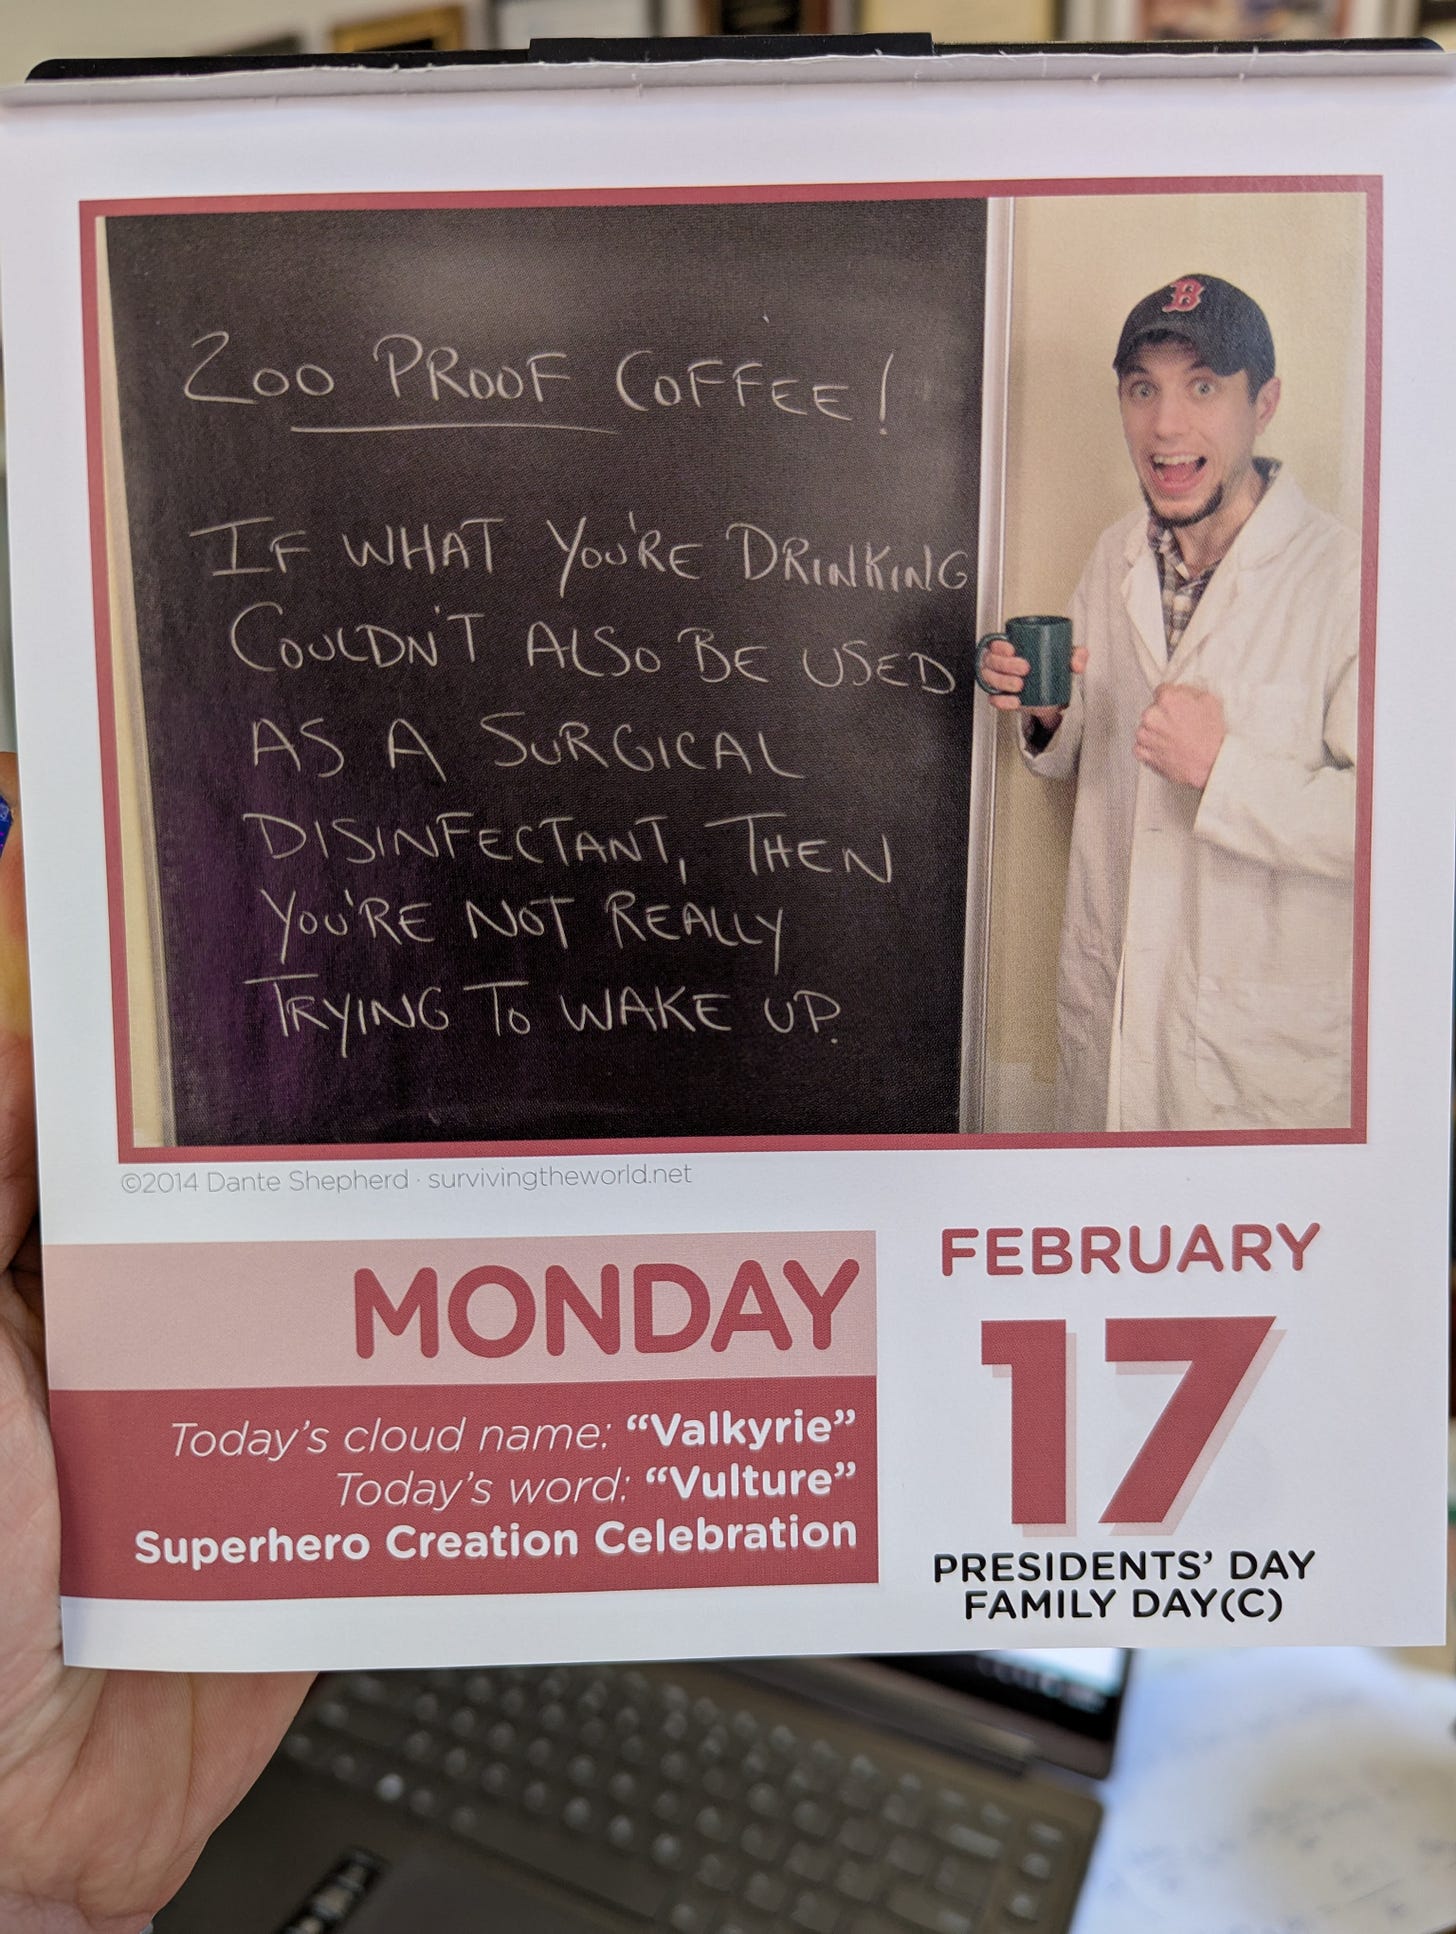 200 PROOF COFFEE!
IF WHAT YOU'RE DRINKING
COULDN'T ALSO BE USED
AS A SURGICAL
DISINFECTANT, THEN
YOU'RE NOT REALLY
TRYING TO WAKE UP.
B
©2014 Dante Shepherd · survivingtheworld.net
MONDAY
Today's cloud name: “Valkyrie”
Today's word: “Vulture”
Superhero Creation Celebration
FEBRUARY
17
PRESIDENTS' DAY
FAMILY DAY(C)